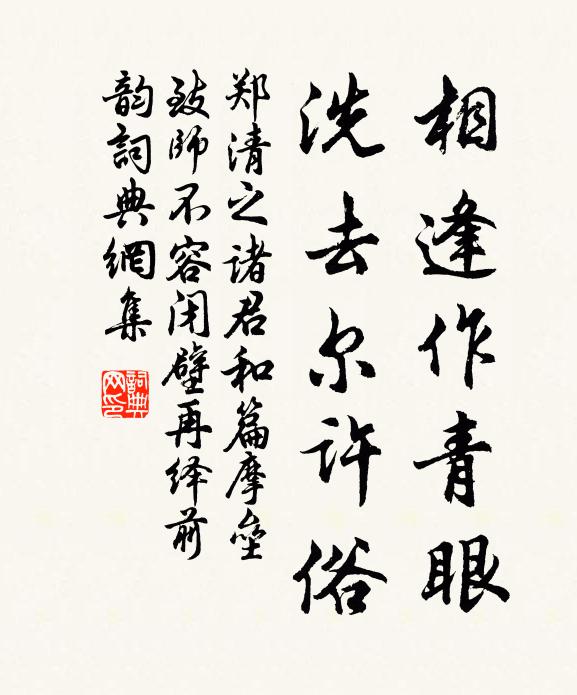 相逢作青眼
洗去尔许俗
郑清之诸君和篇摩垒
致师不容闭壁再绎前
韵词典网集
詞典网印